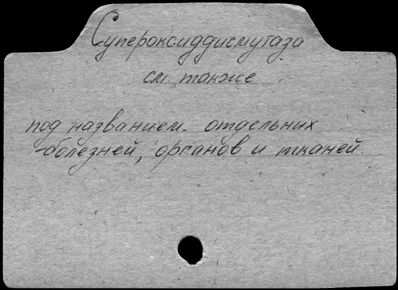 Супероксиддисмутаза
см. также
под названием отдельных
болезней, органов и тканей.